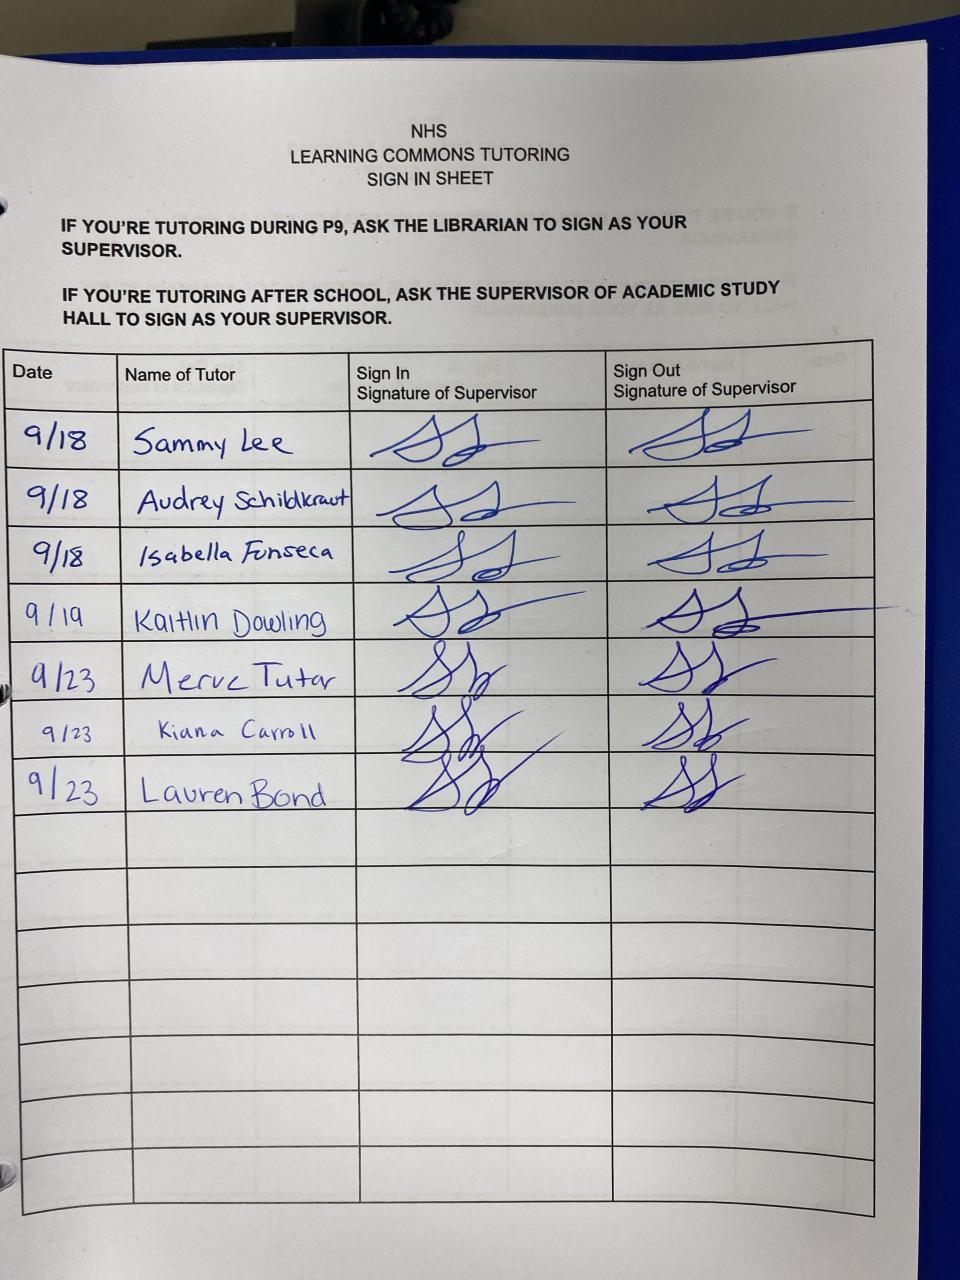 NHS
LEARNING COMMONS TUTORING
SIGN IN SHEET
IF YOU'RE TUTORING DURING P9, ASK THE LIBRARIAN TO SIGN AS YOUR
SUPERVISOR.
IF YOU'RE TUTORING AFTER SCHOOL, ASK THE SUPERVISOR OF ACADEMIC STUDY
HALL TO SIGN AS YOUR SUPERVISOR.
Date Name of Tutor Sign In Sign Out
Signature of Supervisor Signature of Supervisor
9/18 Sammy Lee
9/18 Audrey Schildkraut
9/18 Isabella Fonseca
9/19 Kaitlin Dowling
9/23 Merve Tutar
9/23 Kiana Carroll
9/23 Lauren Bond